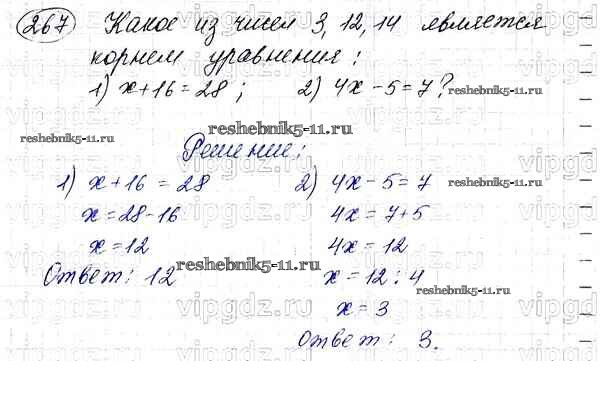 267 Какое из чисел 3, 12, 14 является
корнем уравнения:
1) x+16=28; 2) 4x-5=7?
reshebnik5-11.ru reshebnik5-11.ru
reshebnik5-11.ru
Решение:
1) x+16=28 2) 4x-5=7
reshebnik5-11.ru
x=28-16 4x=7+5
x=12 4x=12
Ответ: 12 reshebnik5-11.ru x=12:4
reshebnik5-11.ru
x=3
Ответ: 3.
vipgdz.ru vipgdz.ru vipgdz.ru